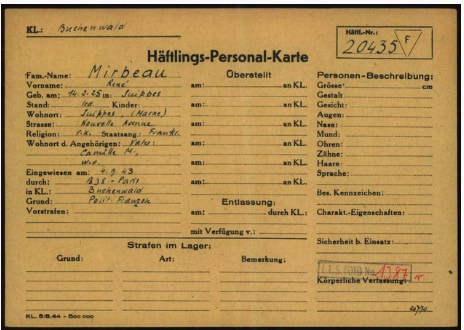 KL.: Buchenwald
Häftl.-Nr.:
20435 F
Häftlings-Personal-Karte
Fam.-Name: Mirbeau
Vorname: René
Geb. am: 14.2.25 in: Suippes
Stand: led. Kinder:
Wohnort: Suippes, (Marne)
Strasse: Nouvelle Avenue
Religion: r.k. Staatsang. Frankr.
Wohnort d. Angehörigen: Vater:
Camille M.,
w.o.
Eingewiesen am: 4.9.43
durch: BdS-Paris
in KL.: Buchenwald
Grund: Polit.
Vorstrafen:
Überstellt
am: an KL.
am: an KL.
am: an KL.
am: an KL.
am: an KL.
am: an KL.
Entlassung:
am: durch KL.:
mit Verfügung v.:
Personen-Beschreibung:
Grösse: cm
Gestalt:
Gesicht:
Augen:
Nase:
Mund:
Ohren:
Zähne:
Haare:
Sprache:
Bes. Kennzeichen:
Charakt.-Eigenschaften:
Sicherheit b. Einsatz:
I.T.S. FOTO No. 1387
Körperliche Verfassung:
Strafen im Lager:
Grund: Art: Bemerkung:
KL. 5/6.44 - 500 000